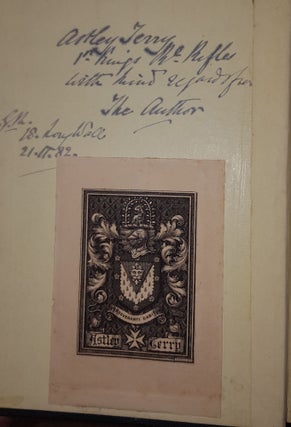 Astley Terry
1st Kings Rl. Rifles
with kind regards from
The Author
18. Long Wall
21.11.82.
Astley Terry